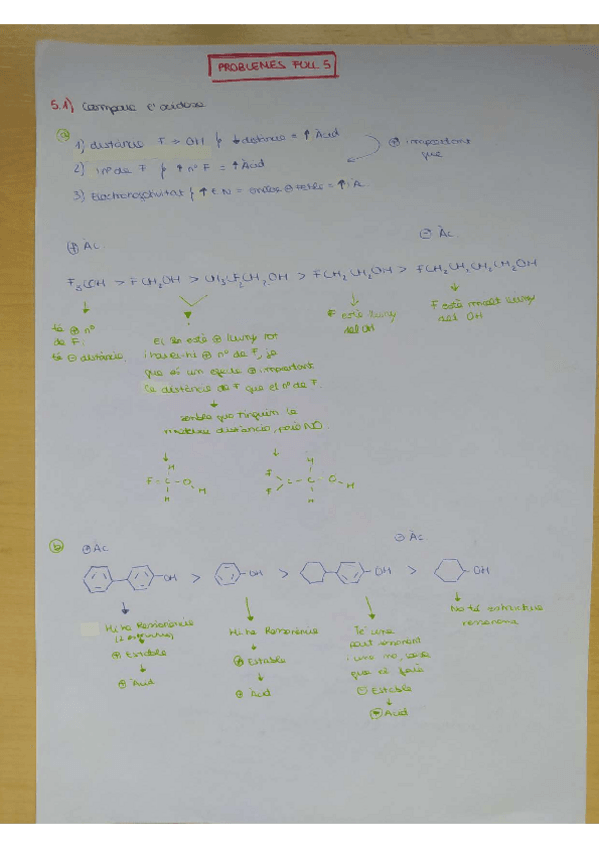 PROBLEMES FULL 5
5.1) Compara l'acidesa
a) 1) distància F → OH / ↓ distància = ↑ Àcid
2) nº de F / ↑ nº F = ↑ Àcid
⊕ important que
3) Electronegativitat / ↑ E.N =
⊕ Àc.
⊖ Àc.
F₃COH > FCH₂OH > CH₃CF₂CH₂OH > FCH₂CH₂OH > FCH₂CH₂CH₂CH₂OH
té ⊕ nº
de F.
té ⊖ distància.
El 2n està ⊕ lluny tot
i haver-hi ⊕ nº de F, ja
que és un efecte ⊕ important
la distància de F que el nº de F.
F està lluny
del OH
F està molt lluny
del OH
sembla que tinguin la
mateixa distància, però NO.
H
F - C - O
H
H
H
F
F
C - C - O
H
H
b) ⊕ Àc
⊖ Àc
OH > OH > OH > OH
Hi ha Ressonància
⊕ Estable
⊕ Àcid
Hi ha Ressonància
⊕ Estable
⊕ Àcid
Té una
part ressonant
i una no, cosa
que el
⊖ Estable
⊖ Àcid
No té estructura
ressonant